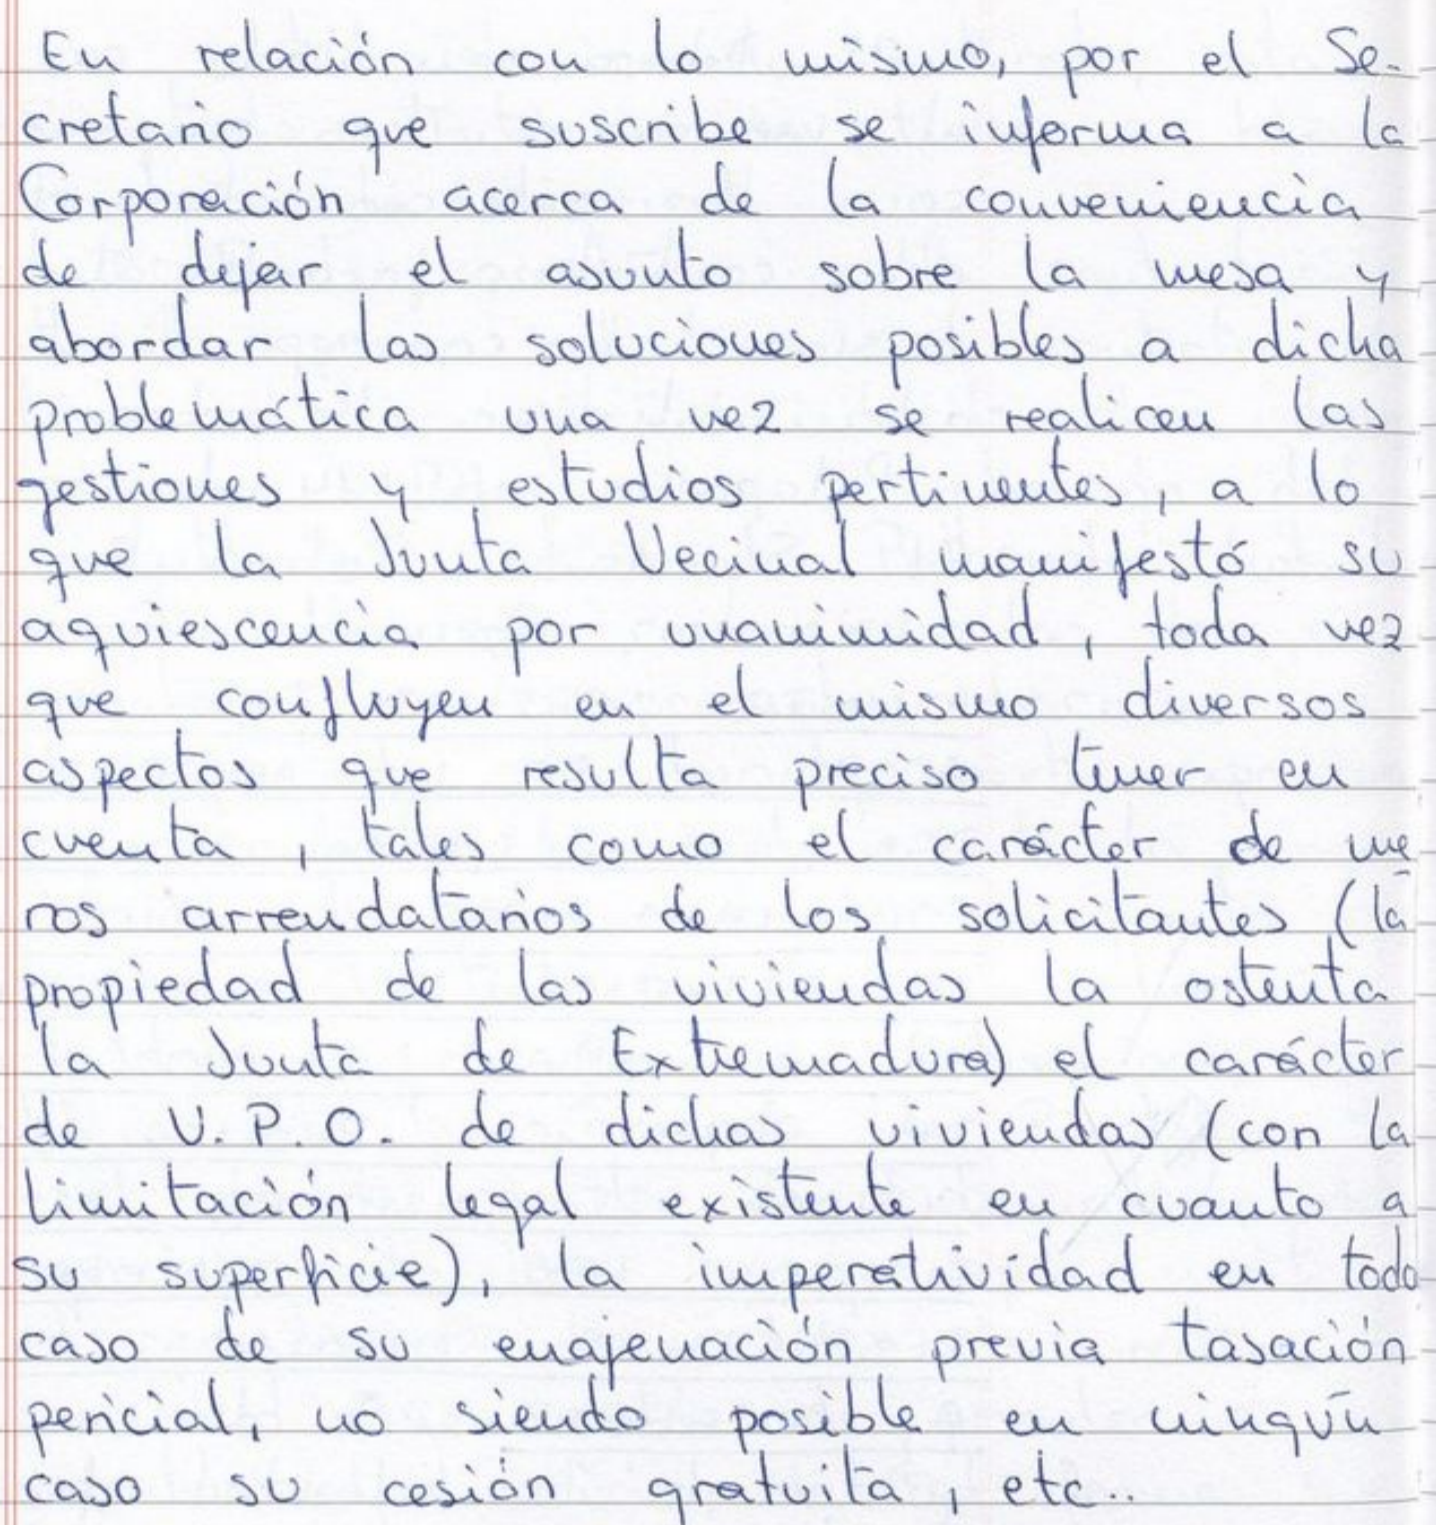 En relación con lo mismo, por el Se-
cretario que suscribe se informa a la
Corporación acerca de la conveniencia
de dejar el asunto sobre la mesa y
abordar las soluciones posibles a dicha
problemática una vez se realicen las
gestiones y estudios pertinentes, a lo
que la Junta Vecinal manifestó su
aquiescencia por unanimidad, toda vez
que confluyen en el mismo diversos
aspectos que resulta preciso tener en
cuenta, tales como el carácter de me
ros arrendatarios de los solicitantes (la
propiedad de las viviendas la ostenta
la Junta de Extremadura) el carácter
de V.P.O. de dichas viviendas (con la
limitación legal existente en cuanto a
su superficie), la imperatividad en todo
caso de su enajenación previa tasación
pericial, no siendo posible en ningún
caso su cesión gratuita, etc..